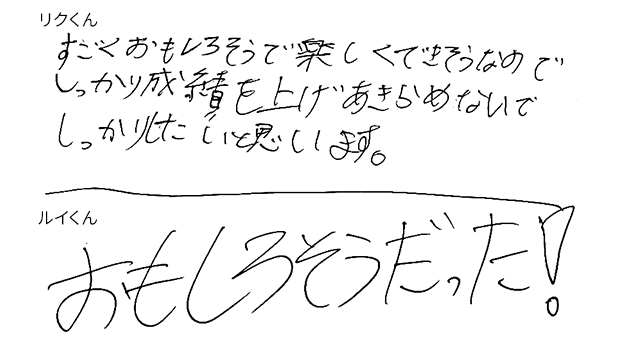 リクくん
すごくおもしろそうで楽しくできそうなので
しっかり成績を上げあきらめないで
しっかりしたいと思います。
ルイくん
おもしろそうだった!